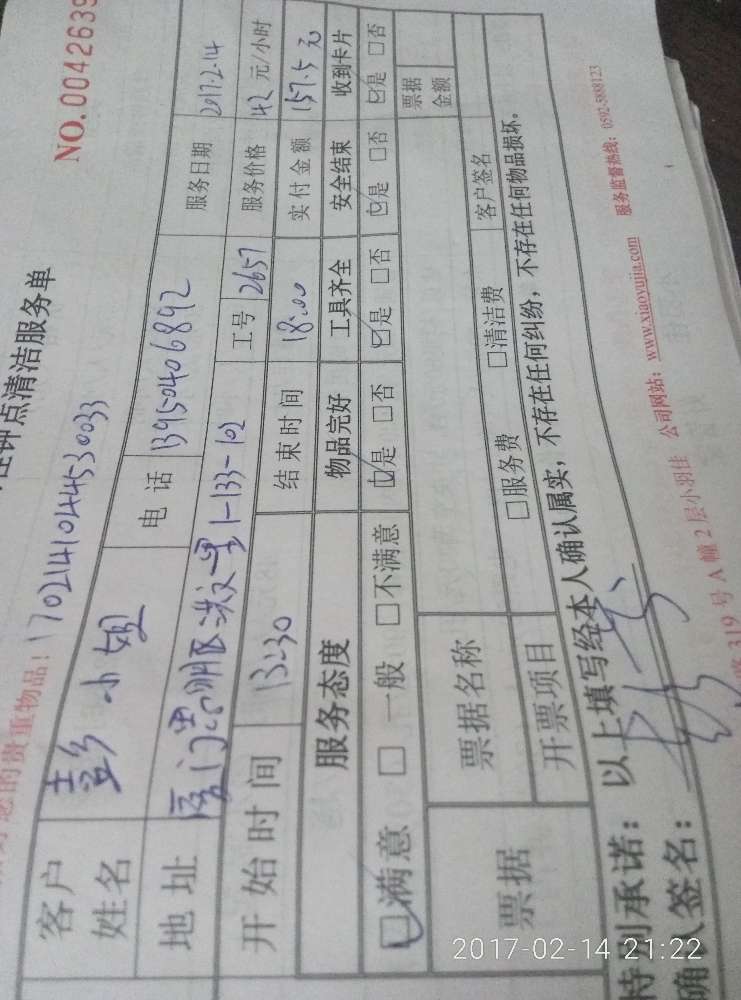 NO.0042639
住钟点清洁服务单
您的贵重物品!
客户姓名 彭小姐 电话 13950406892 服务日期 2017.2.14
地址 厦门思明区洪文里1-133-102 工号 2657 服务价格 42 元/小时
开始时间 13:30 结束时间 18:00 实付金额 157.5 元
服务态度 物品完好 工具齐全 安全结束 收到卡片
☑满意 □一般 □不满意 ☑是 □否 ☑是 □否 ☑是 □否 ☑是 □否
票据 票据名称 票据金额
开票项目 □服务费 □清洁费 客户签名
特别承诺:以上填写经本人确认属实,不存在任何纠纷,不存在任何物品损坏。
确认签名:
路319号A幢2层小羽佳 公司网站:www.xiaoyujia.com 服务监督热线:0592-5888123
2017-02-14 21:22